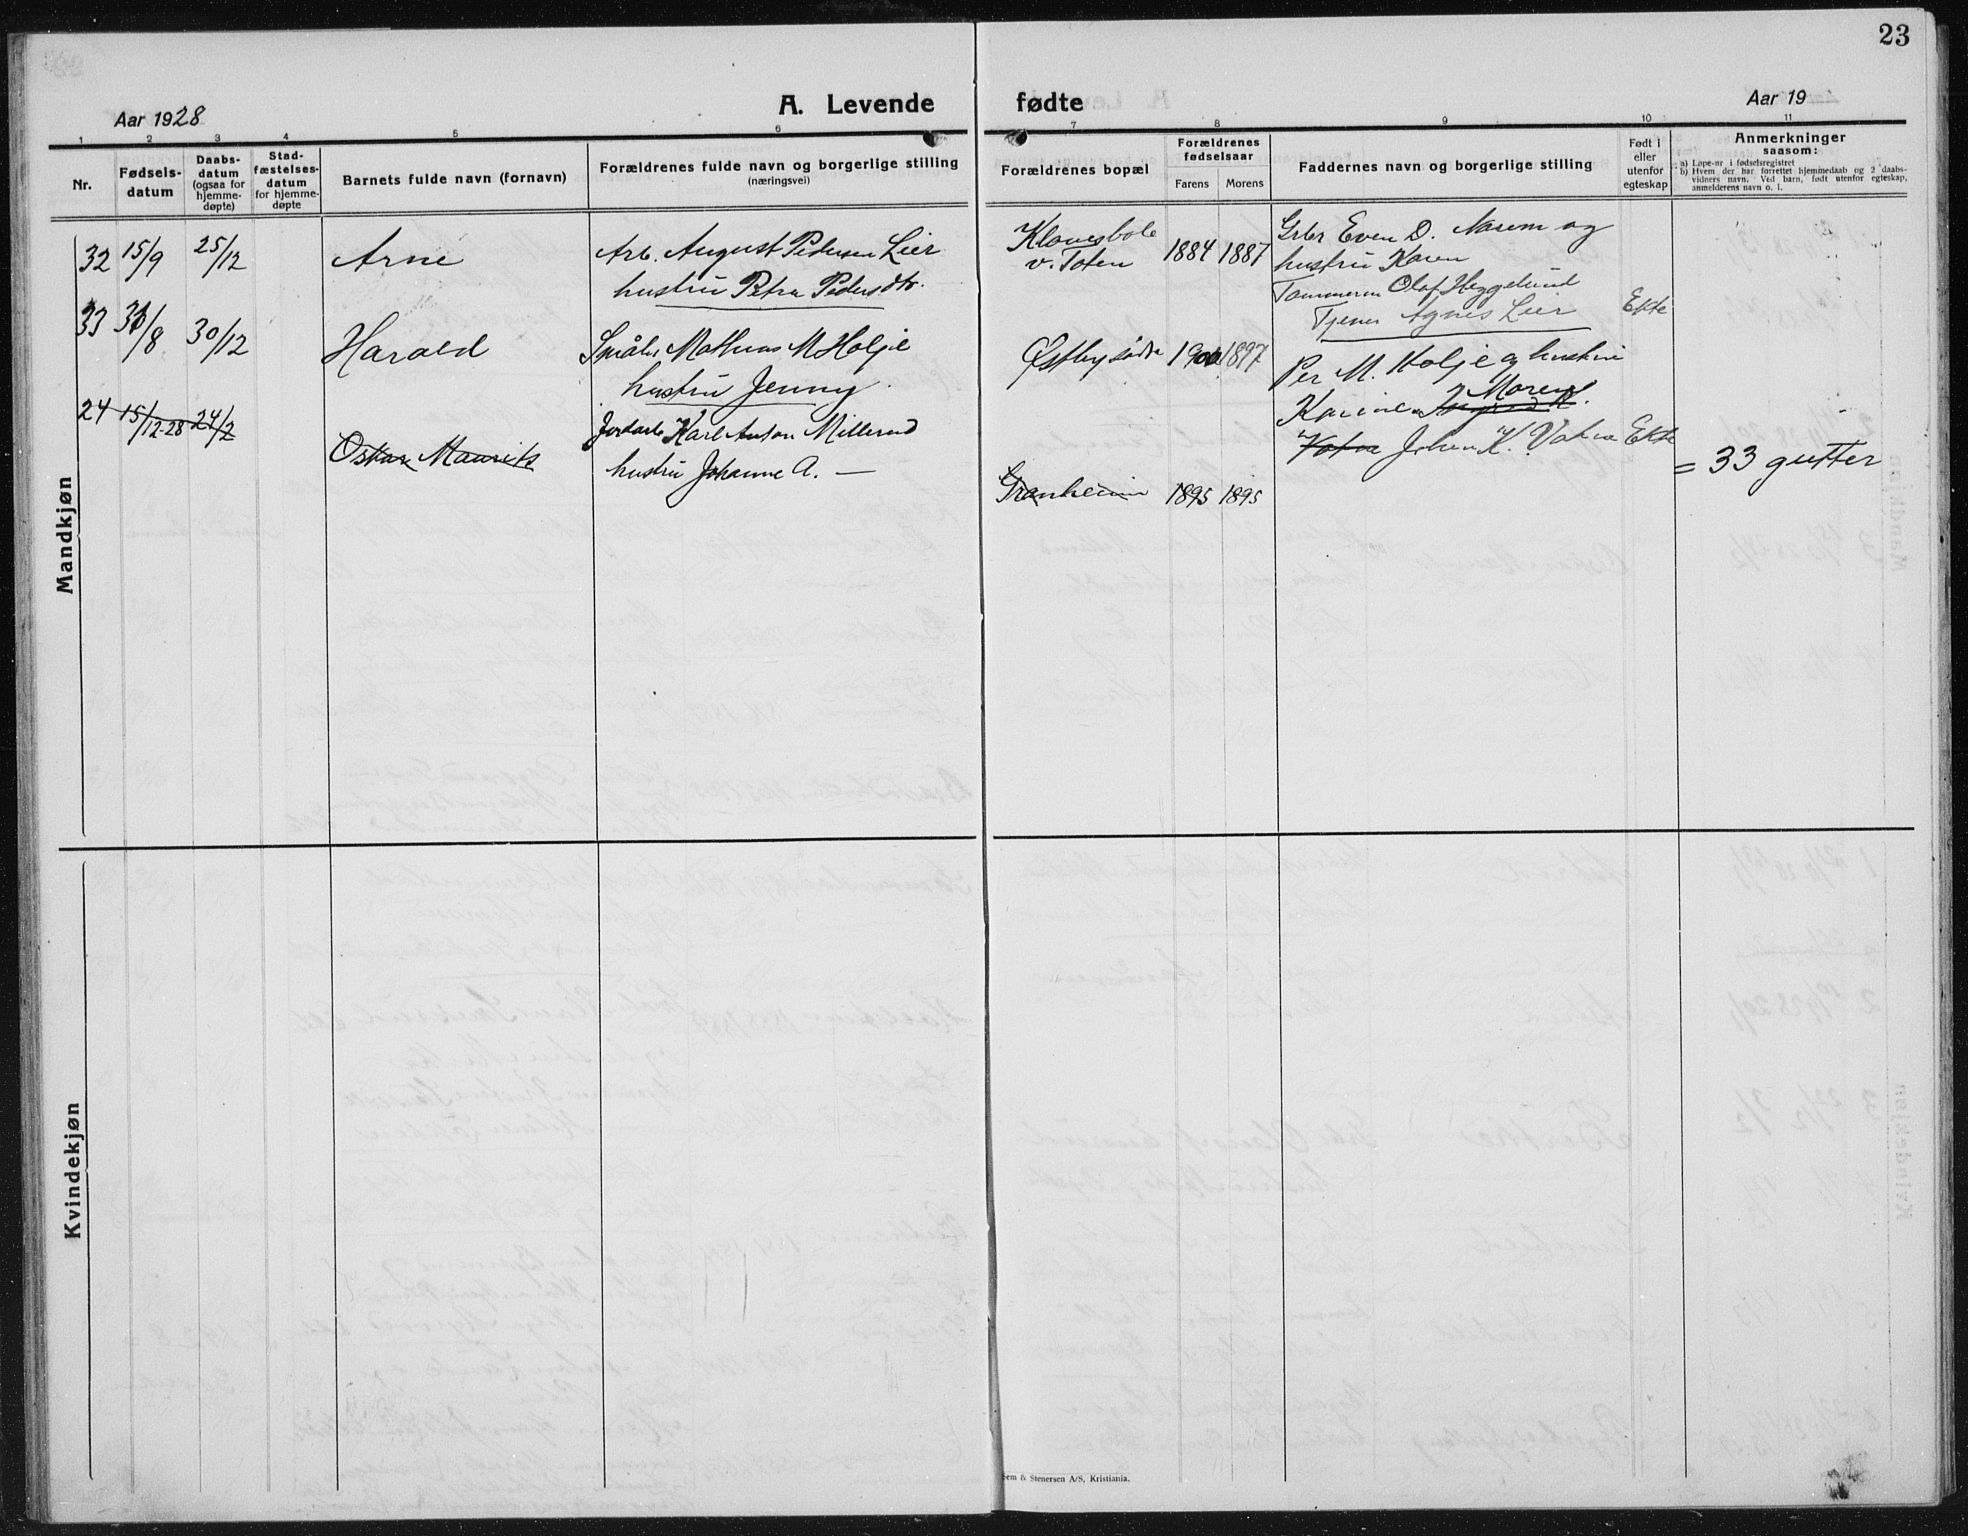 23
Aar 1928
A. Levende fødte
Aar 19
1 2 3 4 5 6 7 8 9 10 11
Nr.
Fødsels-
datum
Daabs-
datum
(ogsaa for
hjemme-
døpte)
Stad-
fæstelses-
datum
for hjemme-
døpte
Barnets fulde navn (fornavn)
Forældrenes fulde navn og borgerlige stilling
(næringsvei)
Forældrenes bopæl
Forældrenes
fødselsaar
Farens Morens
Faddernes navn og borgerlige stilling
Født i
eller
utenfor
egteskap
Anmerkninger
saasom:
a) Løpe-nr i fødselsregistret
b) Hvem der har forrettet hjemmedaab og 2 daabs-
vidners navn. Ved barn, født utenfor egteskap,
anmelderens navn o. l.
Mandkjøn
32 15/9 25/12 Arne
Arb. August Pedersen Lier
hustru Petra Pedersdtr.
v. Toten
1884 1887
Grbr Even D. Narum og
hustru Karen
Tømmerm Olaf Heggelund
Tjener Agnes Lier
Ekte
33 31/8 30/12 Harald
Småbr. Mathias M Holje
hustru Jenny
Østby søndre 1900 1897
Per M. Holje og hustru
Karine
Johan K. Ekte
24 15/12-28 24/2
Oskar Maurits
Karl Anton Millerud
hustru Johanne A. —
Granheim 1895 1895
= 33 gutter
Kvindekjøn
Sem & Stenersen A/S, Kristiania.